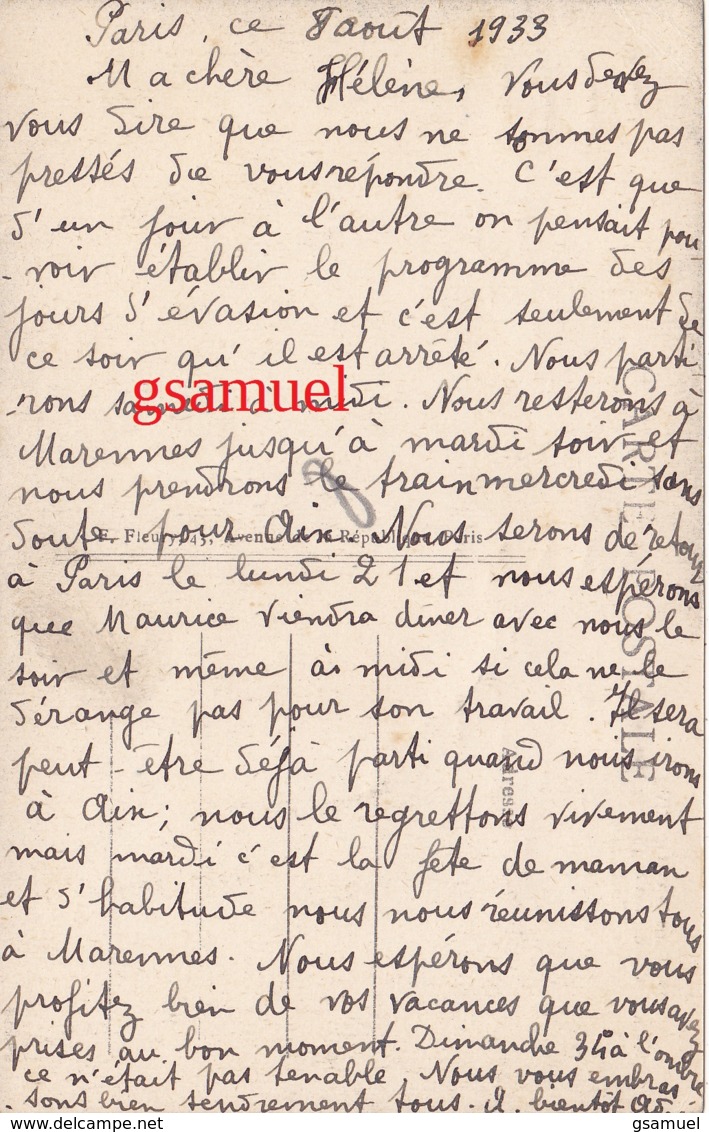 Paris, ce 8 aout 1933
Ma chère Hélène, Vous devez
vous dire que nous ne sommes pas
pressés de vous répondre. C'est que
d'un jour à l'autre on pensait pou
-voir établir le programme des
jours d'évasion et c'est seulement de
ce soir qu'il est arrêté. Nous parti
-rons samedi à midi. Nous resterons à
gsamuel
Marennes jusqu'à mardi soir et
nous prendrons le train mercredi sans
doute pour Aix. Nous serons de retour
E. Fleury, 43, Avenue de la République, Paris
à Paris le lundi 21 et nous espérons
que Maurice viendra diner avec nous le
soir et même à midi si cela ne le
dérange pas pour son travail. Il sera
peut-être déjà parti quand nous irons
à Aix; nous le regrettons vivement
mais mardi c'est la fête de maman
et d'habitude nous nous réunissons tous
à Marennes. Nous espérons que vous
profitez bien de vos vacances que vous avez
prises au bon moment. Dimanche 34° à l'ombre
ce n'était pas tenable. Nous vous embras
-sons bien tendrement tous. A bientôt
CARTE POSTALE
Adresse
gsamuel
gsamuel